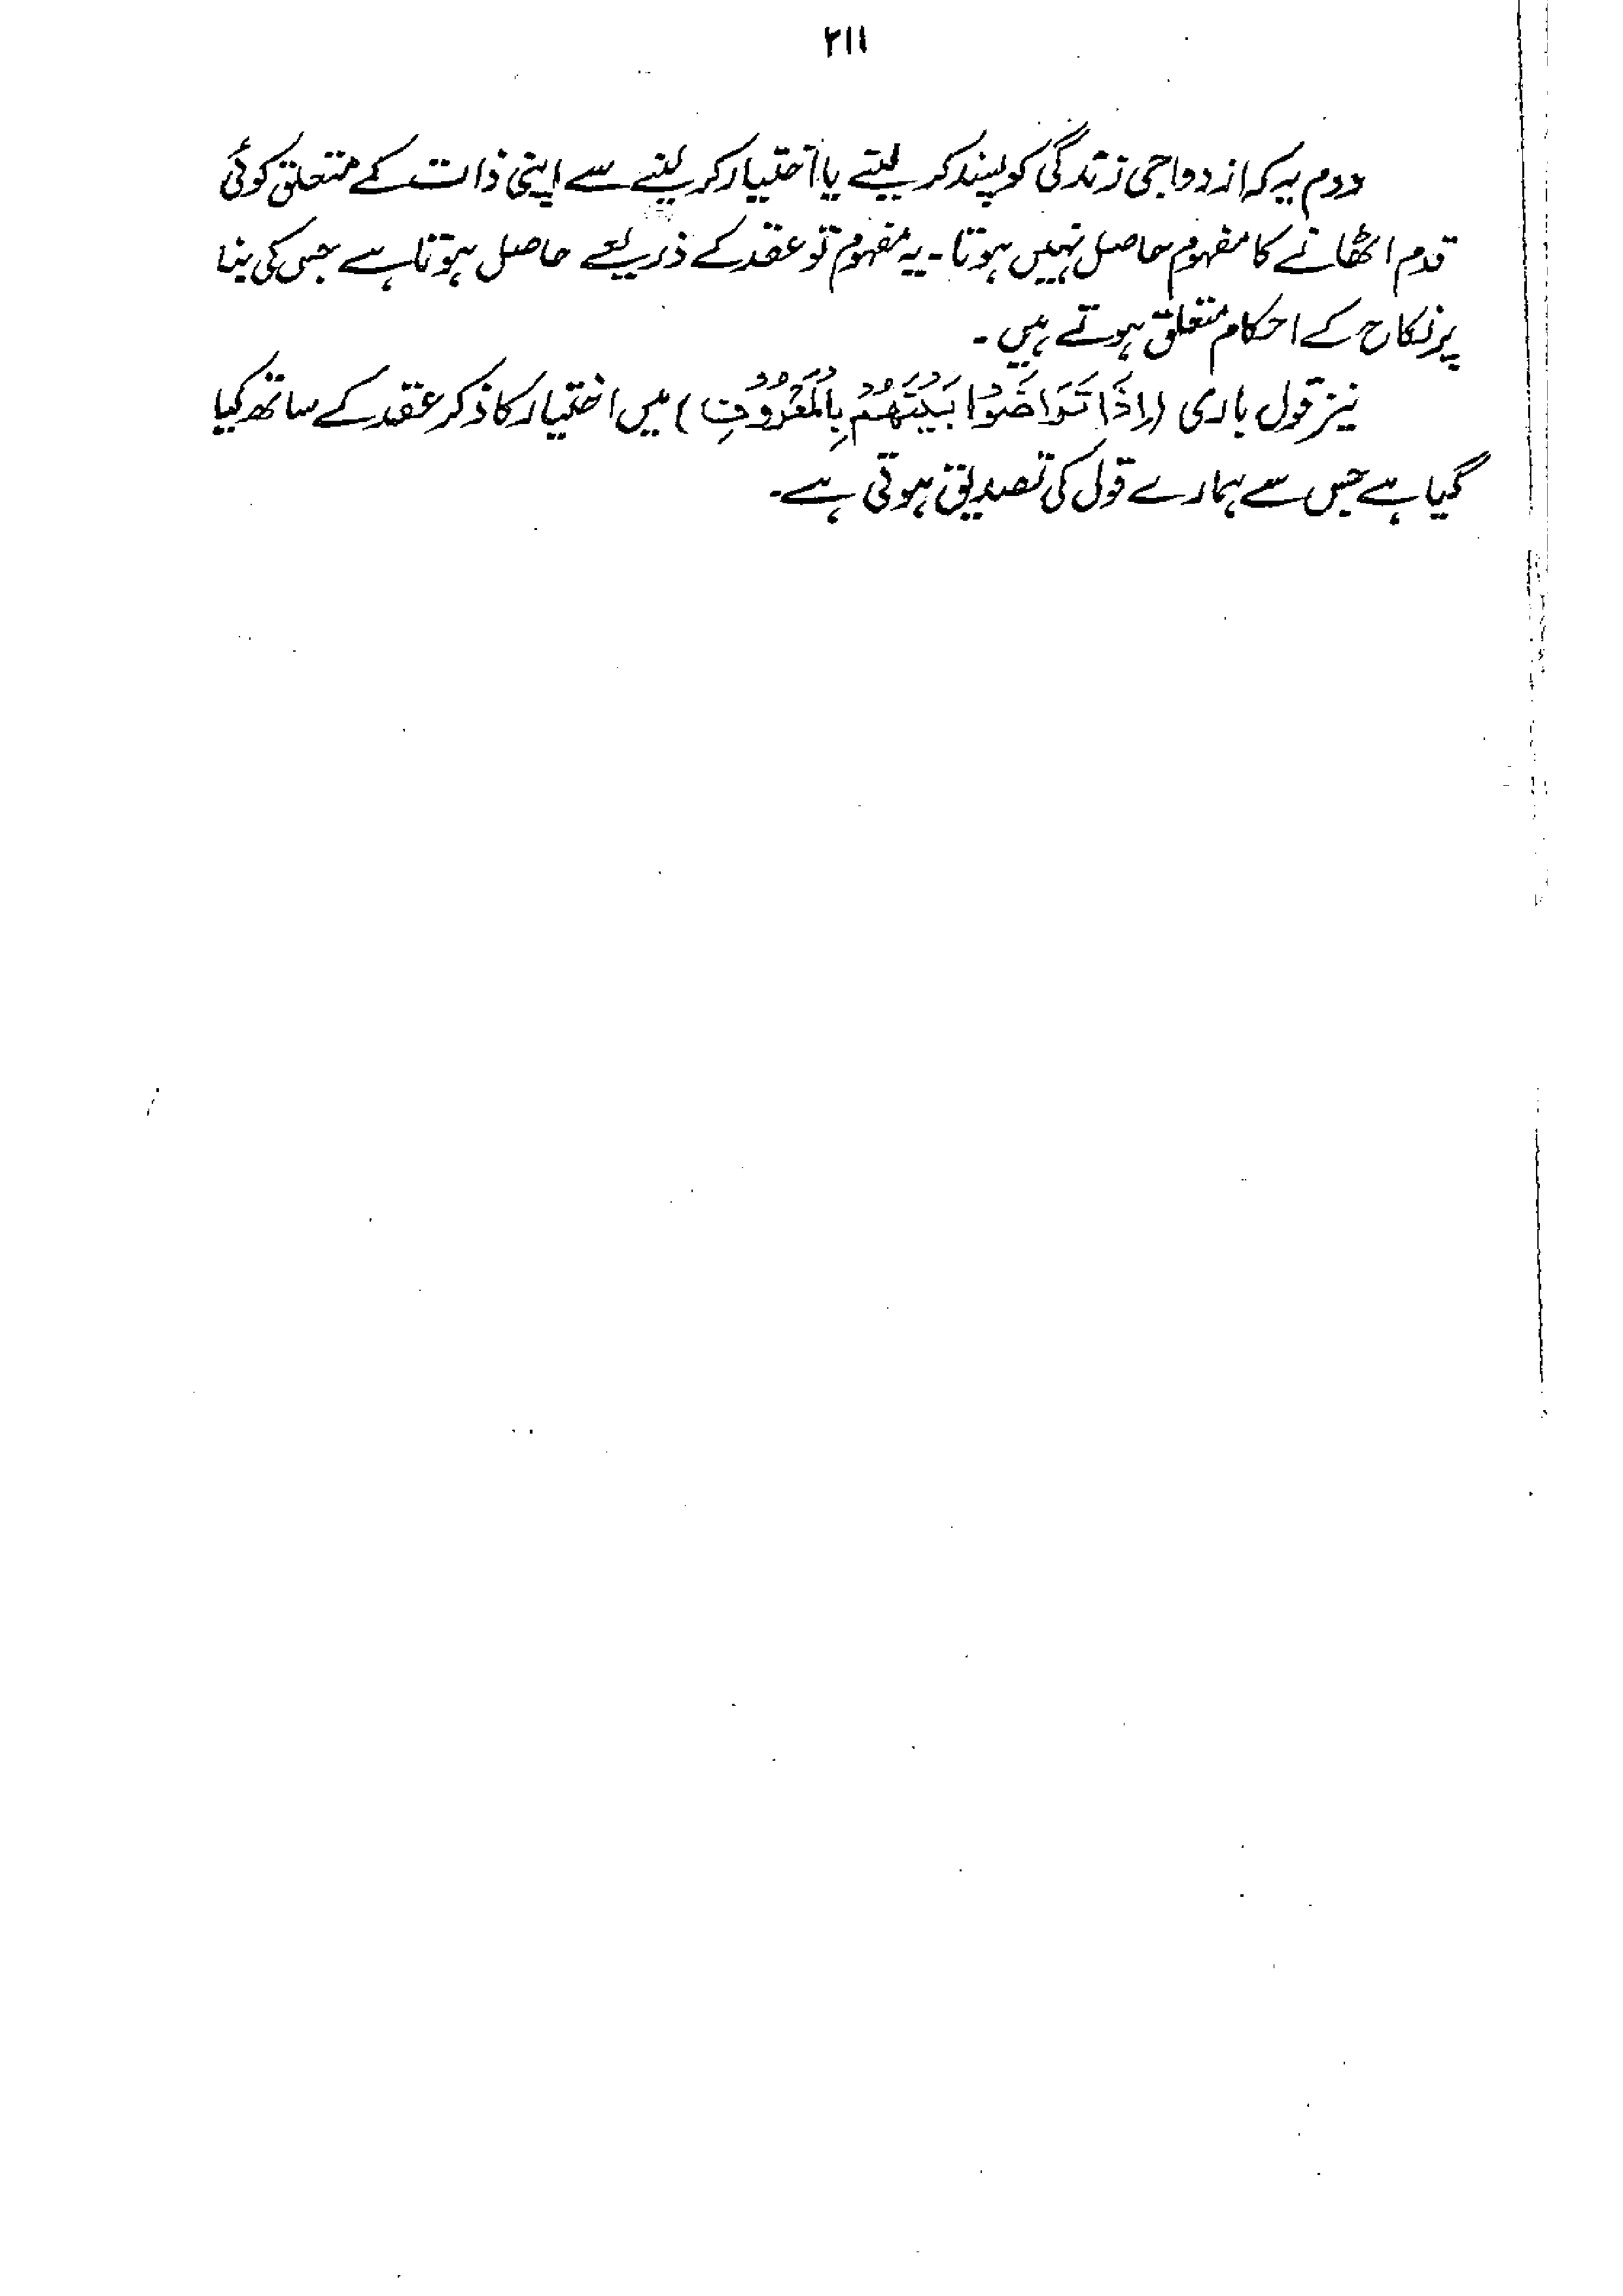 ۲۱۱
دوم یہ کہ ازدواجی زندگی کو پسند کر لینے یا اختیار کر لینے سے اپنی ذات کے متعلق کوئی
قدم اٹھانے کا مفہوم حاصل نہیں ہوتا۔ یہ مفہوم تو عقد کے ذریعے حاصل ہوتا ہے جس کی بنا
پر نکاح کے احکام متعلق ہوتے ہیں۔
نیز قول باری (اِذَا تَرَاضَوْا بَيْنَهُمْ بِالْمَعْرُوْفِ) میں اختیار کا ذکر عقد کے ساتھ کیا
گیا ہے جس سے ہمارے قول کی تصدیق ہوتی ہے۔